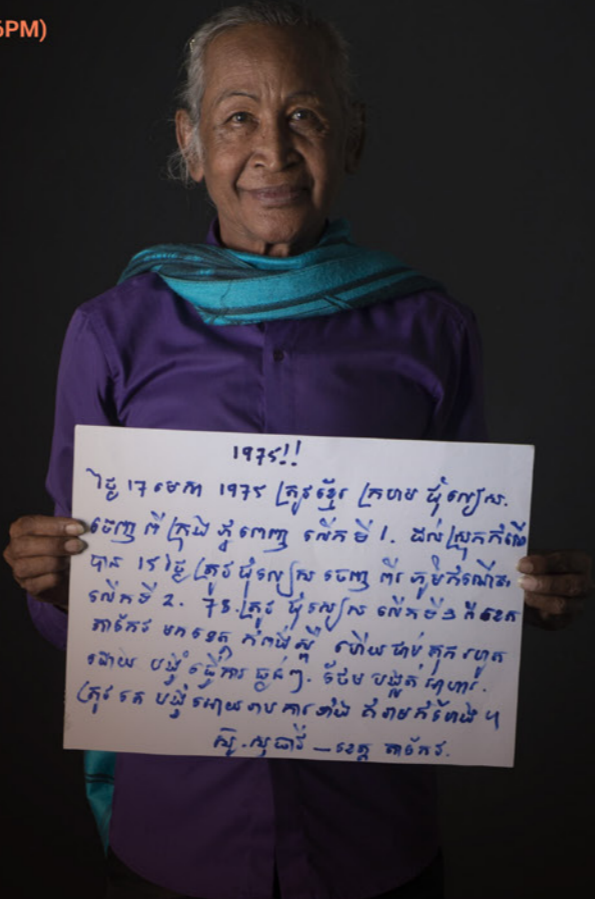 6PM)
1975!!
ថ្ងៃ 17 មេសា 1975 ត្រូវខ្មែរ ក្រហម ជំលៀស.
ចេញ ពី ក្រុង ភ្នំពេញ លើកទី 1. ដល់ស្រុកកំណើត
បាន 15 ថ្ងៃ ត្រូវ ជំលៀស ចេញ ពី ភូមិកំណើត
លើកទី 2. 75. ត្រូវ ជំលៀស លើកទី 3 ពី ខេត្ត
តាកែវ មក ខេត្ត កំពង់ស្ពឺ ហើយ ជាប់ គុក រហូត
ដោយ បង្ខំ ធ្វើការ ធ្ងន់ៗ. ថែម បង្អត់ អាហារ.
ត្រូវ គេ បង្ខំ អោយ រៀបការ ទាំង គំរាមកំហែង ។
ស៊. សុធាវី – ខេត្ត តាកែវ.